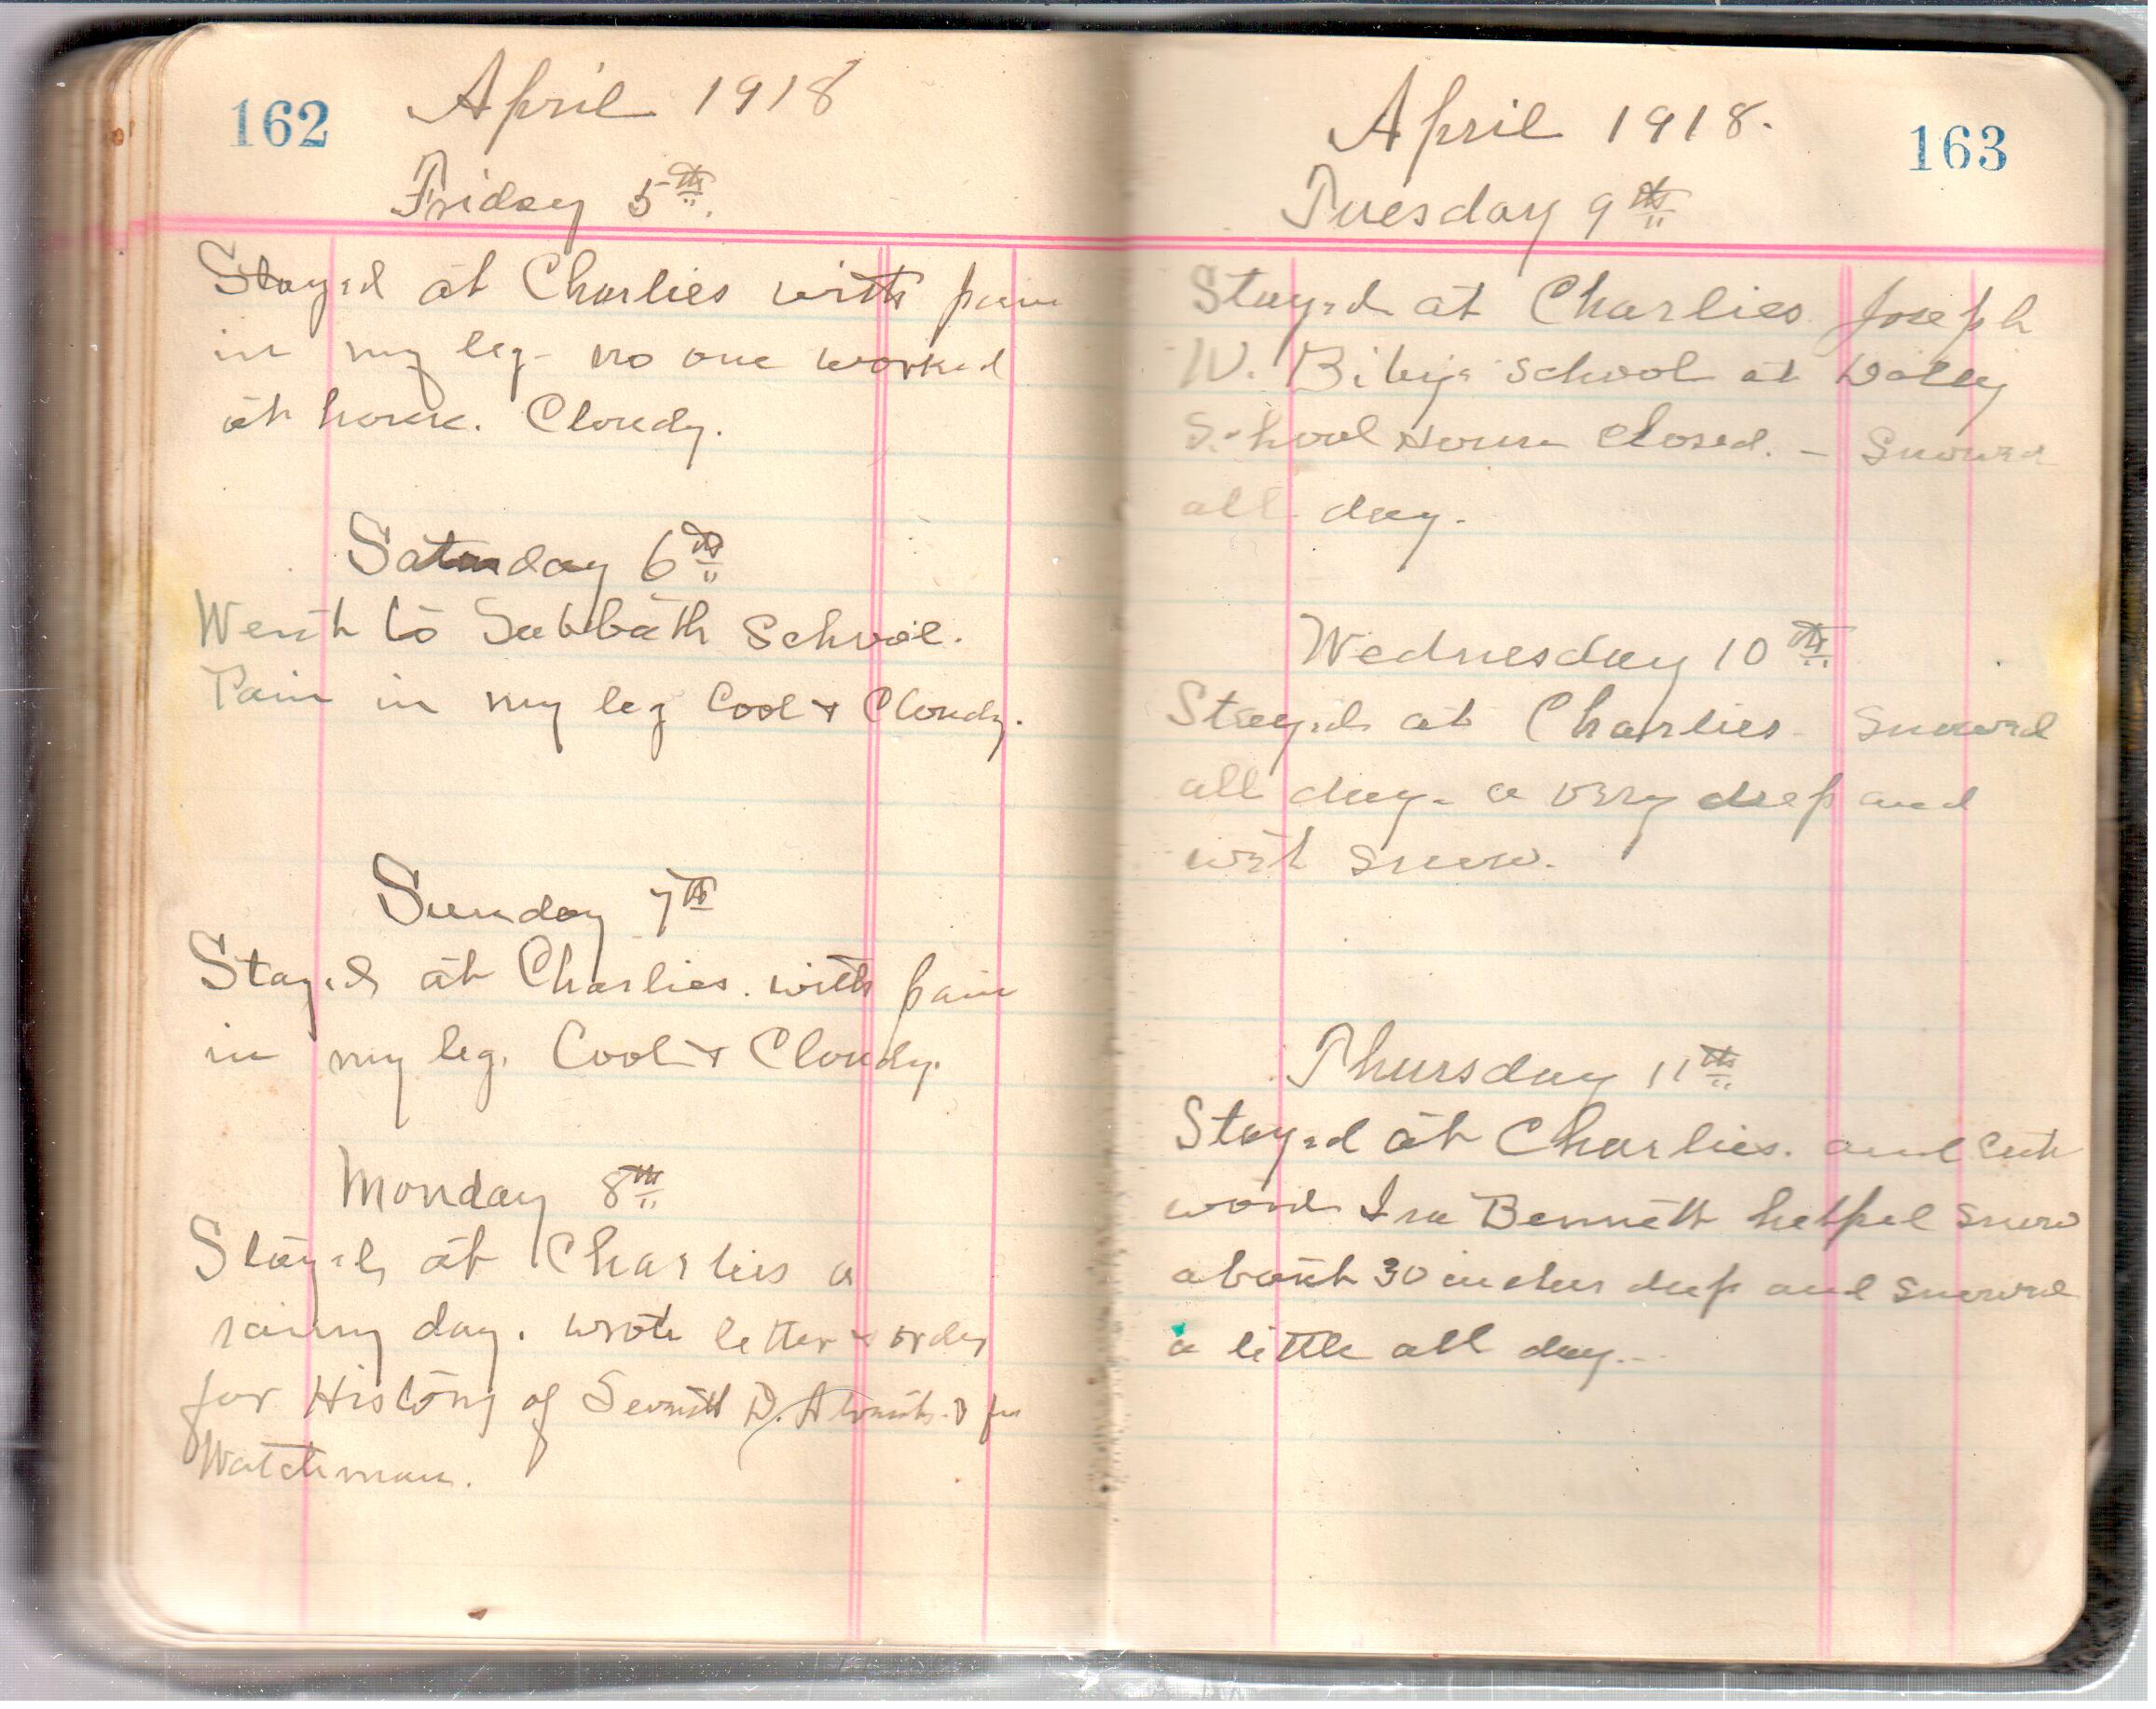 162
April 1918
Friday 5th.
Stayed at Charlies with pain
in my leg - no one worked
at home. Cloudy.
Saturday 6th
Went to Sabbath School.
Pain in my leg Cool & Cloudy.
Sunday 7th
Stayed at Charlies. with pain
in my leg. Cool & Cloudy.
Monday 8th
Stayed at Charlies a
rainy day. wrote letter & order
for History of Seventh D. for
Watchman.
April 1918.
163
Tuesday 9th
Stayed at Charlies Joseph
W. Bibys School at
School House closed. - Snowed
all day.
Wednesday 10th
Stayed at Charlies - Snowed
all day - a very deep and
wet snow.
Thursday 11th
Stayed at Charlies. and cut
wood Ira Bennett helped Snow
about 30 inches deep and snowed
a little all day. -